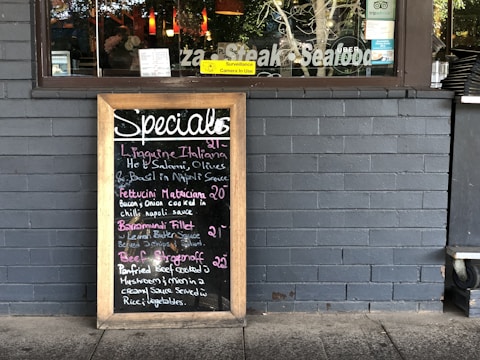 za · Steak · Seafood
OPEN
Surveillance
Camera in Use
Specials
21-
Linguine Italiana
Hot Salami, Olives
& Basil in Napoli Sauce
Fettucini Matriciana 20-
Bacon & Onion cooked in
chilli napoli sauce
Barramundi Fillet
w Lemon Butter Sauce 21-
Served
Beef Stroganoff 22-
Panfried Beef cooked w
Mushroom & onion in a
creamy Sauce Served w
Rice & Vegetables.